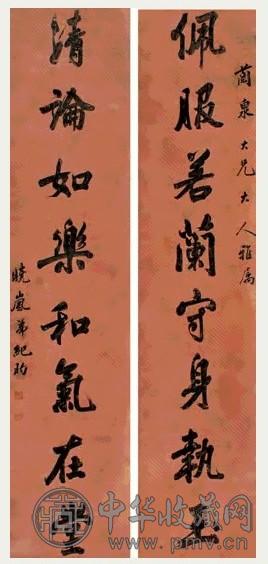 蘭泉大兄大人雅屬
佩服若蘭守身執玉
清論如樂和氣在堂
曉嵐弟紀昀
中华收藏网
www.pmv.cn